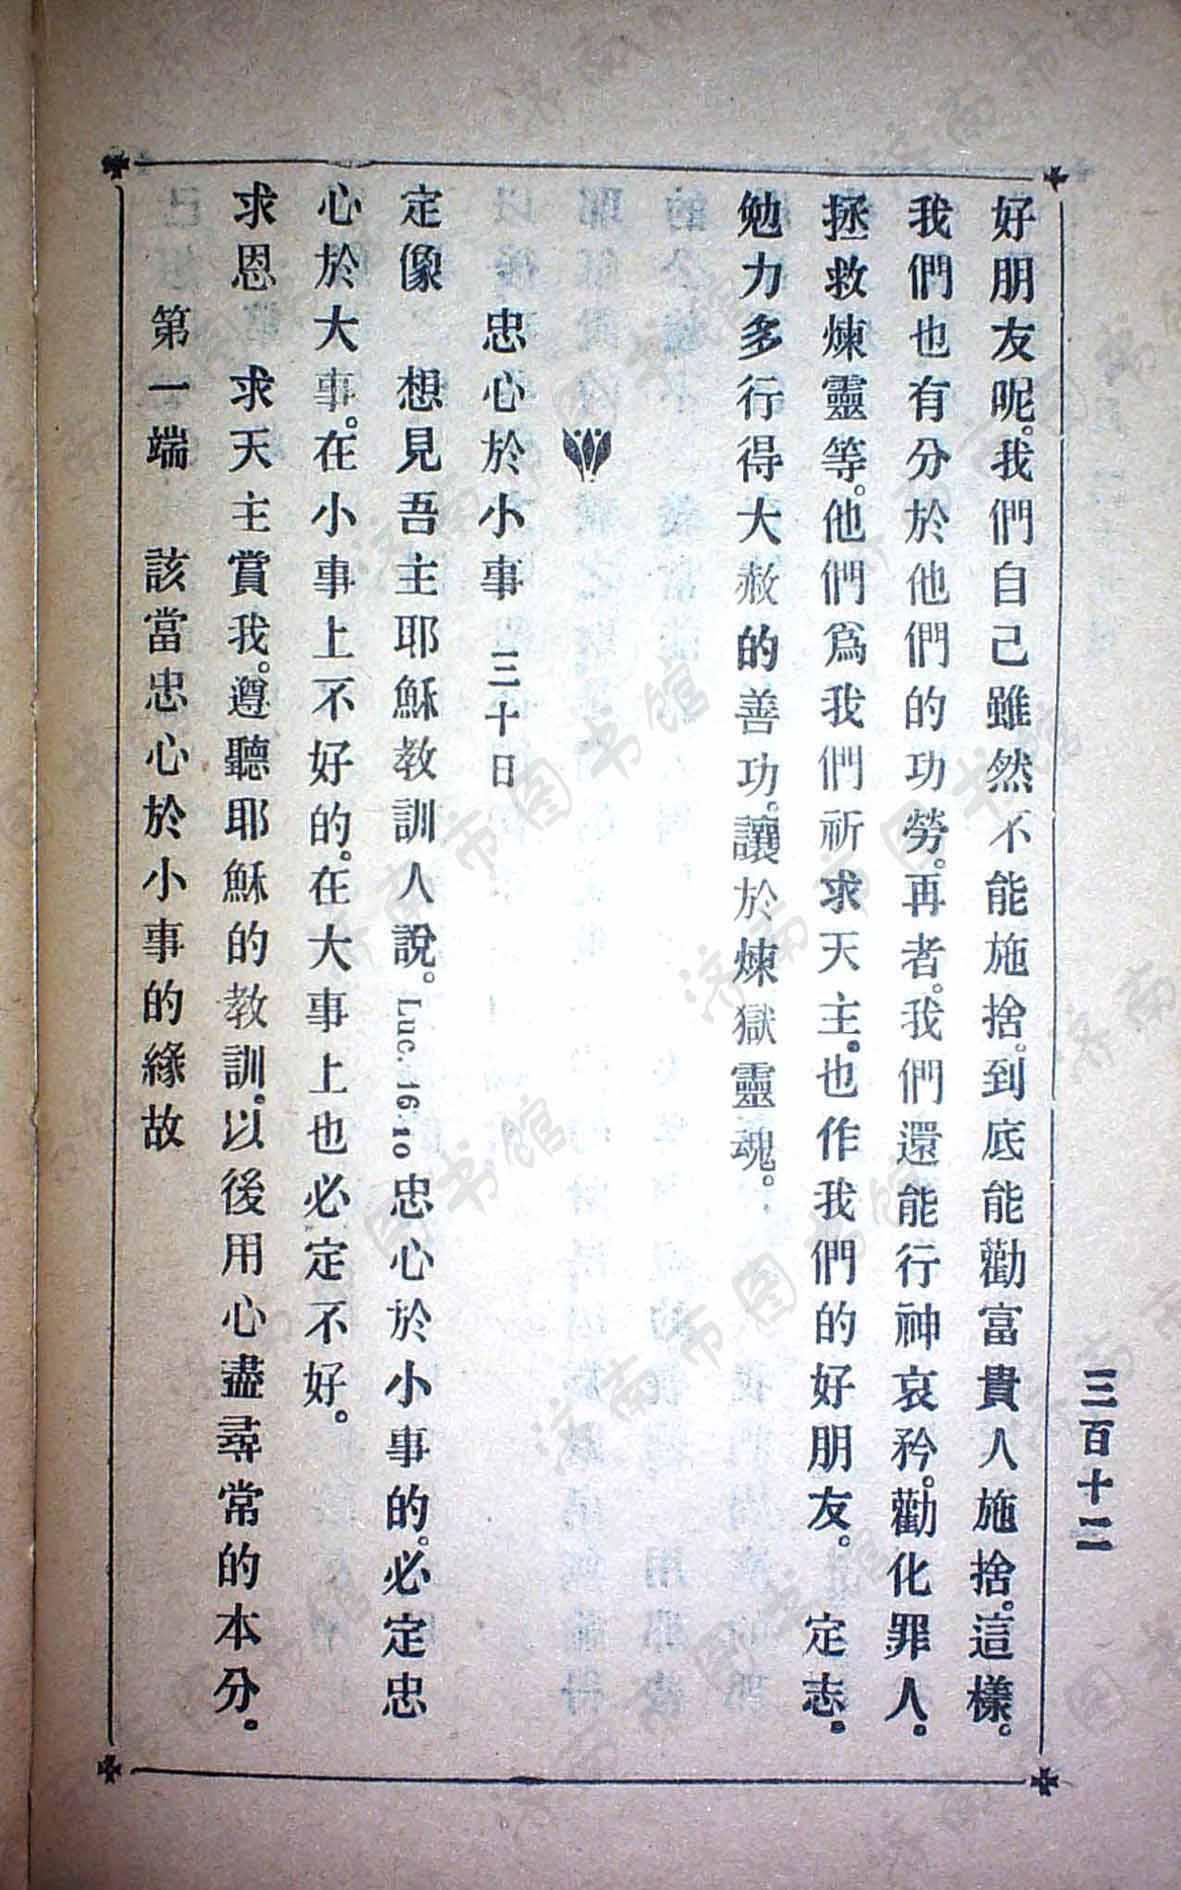 三百十二
好朋友呢。我們自己雖然不能施捨。到底能勸富貴人施捨。這樣。
我們也有分於他們的功勞。再者。我們還能行神哀矜。勸化罪人。
拯救煉靈等。他們爲我們祈求天主。也作我們的好朋友。 定志。
勉力多行得大赦的善功。讓於煉獄靈魂。
忠心於小事 三十日
定像 想見吾主耶穌教訓人說。Luc. 16. 10忠心於小事的。必定忠
心於大事。在小事上不好的。在大事上也必定不好。
求恩 求天主賞我。遵聽耶穌的教訓。以後用心盡尋常的本分。
第一端 該當忠心於小事的緣故
济南市图书馆